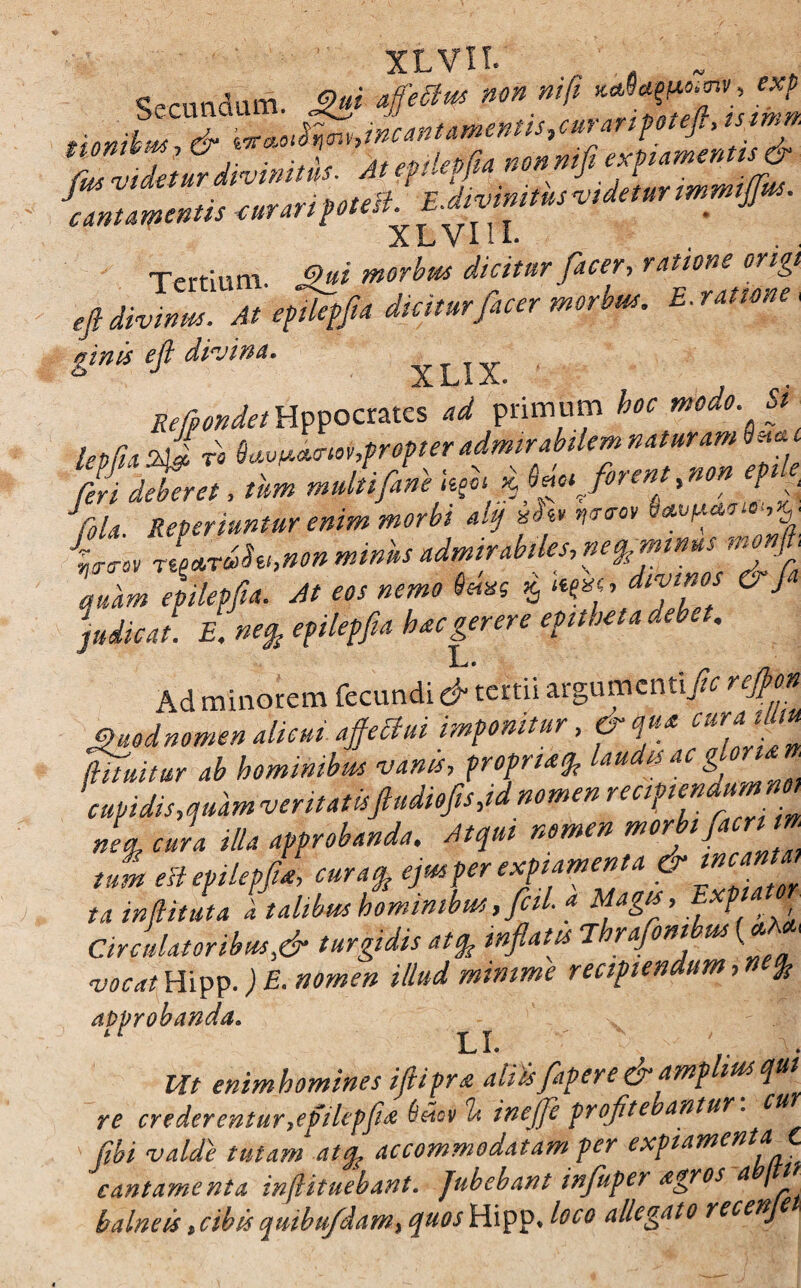 XLVII.
Secundum. Qui affectus non nisi καθαρμοῖσιν, exp
tionibus, & ἐπαοιδῇσιν, incantamentis, curari potest, is imm
sus videtur divinitùs. At epilepsia non nisi expiamentis &
cantamentis curari potest. E. divinitùs videtur immissus.
XLVIII.
Tertium. Qui morbus dicitur sacer, ratione origi
est divinus. At epilepsia dicitur sacer morbus. E. ratione
ginis est divina.
XLIX.
Respondet Hppocrates ad primum hoc modo. Si
lepsia διὰ τὸ θαυμάσιον, propter admirabilem naturam
feri deberet, tùm multi sanè ἱεροὶ & θεῖοι forent, non epile
sola. Reperiuntur enim morbi alij οὐδὲν ἧσσον
ἧσσον τερατώδει, non minùs admirabiles, neq; minùs monst
quàm epilepsia. At eos nemo θείους & ἱεροὺς, divinos & sa
judicat. E. neq; epilepsia hæc gerere epitheta debet.
L.
Ad minorem secundi & tertii argumenti sic respon
Quod nomen alicui affectui imponitur, & quæ cura illiu
stituitur ab hominibus vanis, propriæq; laudis ac gloriæ m
cupidis, quàm veritatis studiosis, id nomen recipiendum non
neq; cura illa approbanda. Atqui nomen morbi sacri im
tum est epilepsiæ, curaq; ejus per expiamenta & incantam
ta instituta à talibus hominibus, scil. à Magis, Expiator
Circulatoribus, & turgidis atq; inflatis Thrasonibus (ἀλα
vocat Hipp.) E. nomen illud minimè recipiendum, neq;
approbanda.
LI.
Ut enim homines isti præ aliis sapere & amplius qui
re crederentur, epilepsiæ θεῖόν τι inesse profitebantur: cur
sibi valdè tutam atq; accommodatam per expiamenta &
cantamenta instituebant. Jubebant insuper ægros abstin
balneis, cibis quibusdam, quos Hipp. loco allegato recenset